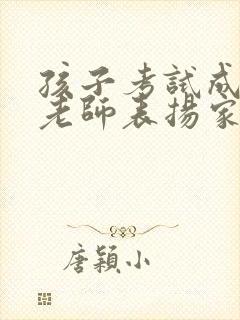 孩子考試成
老師表揚家
唐穎小